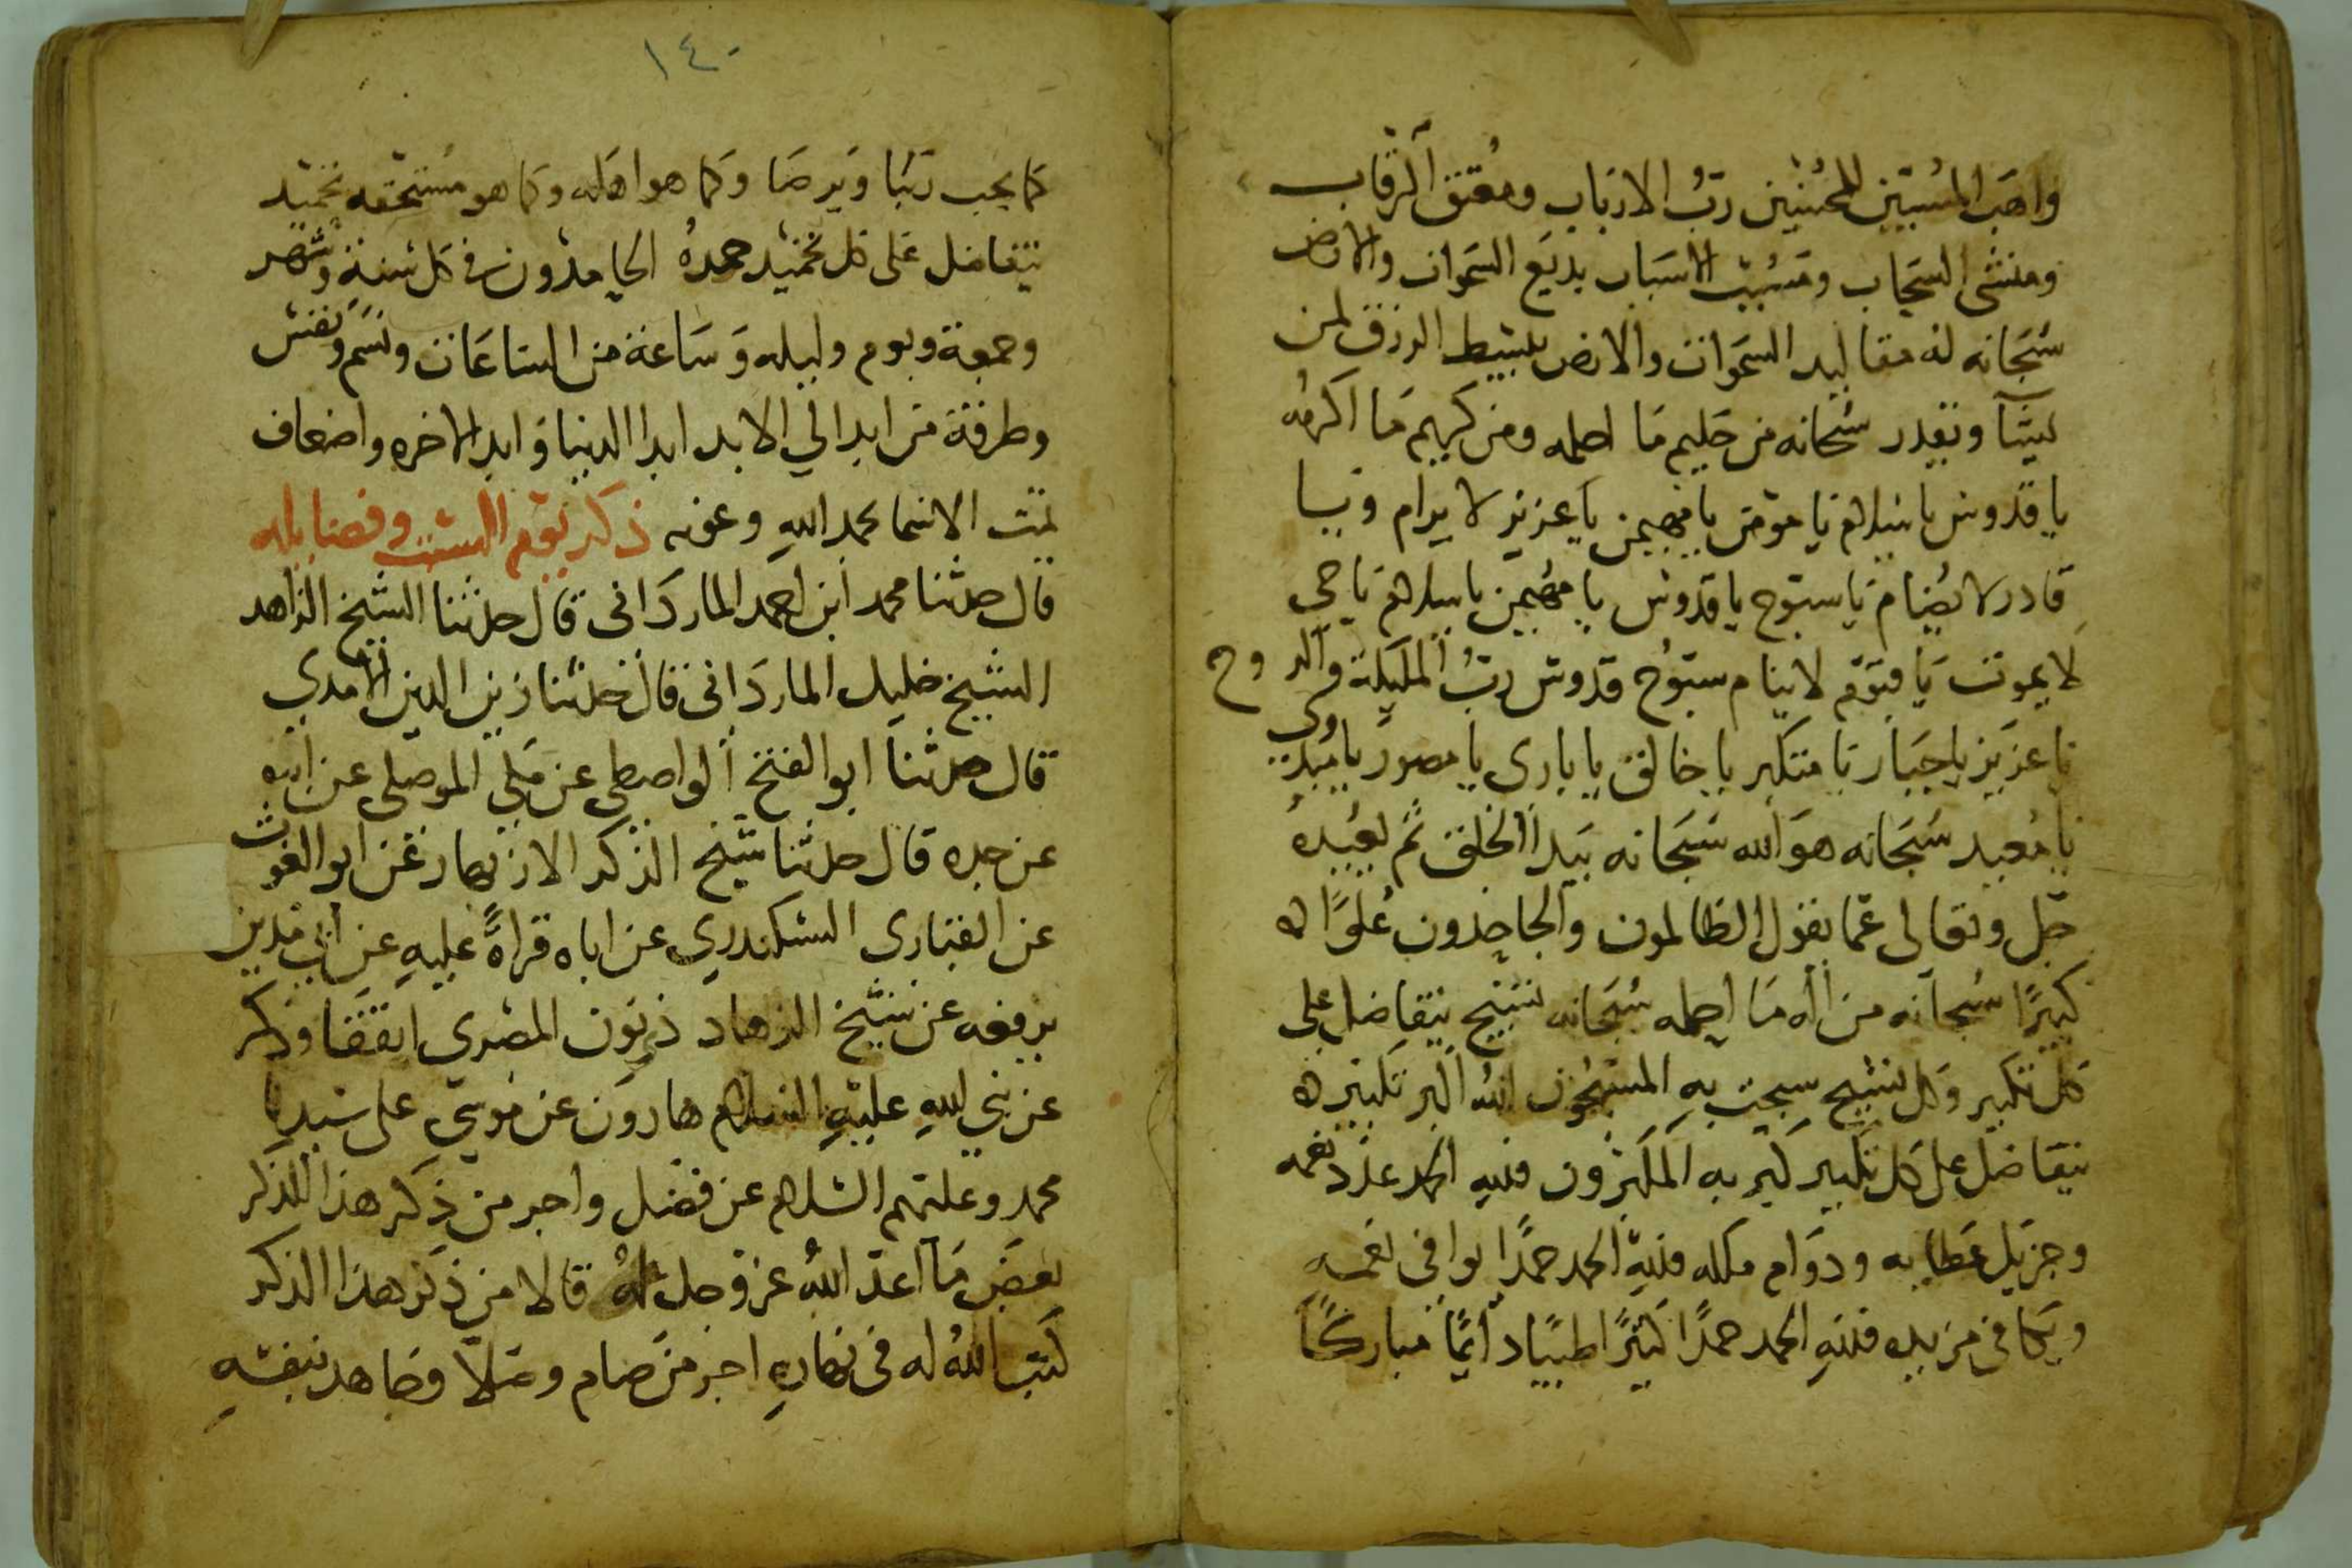 واهب المسيئين للمحسنين رب الارباب ومعتق الرقاب
ومنشى السحاب ومسبب الاسباب بديع السموات والارض
سبحانه له مقاليد السموات والارض يبسط الرزق لمن
يشآ ويقدر سبحانه من حليم ما احلمه ومن كريم ما اكرمه
يا قدوس يا سلام يا مومن يا مهيمن يا عزيز لا يرام ويا
قادر لا يضام يا سبوح يا قدوس يا مهيمن يا سلام يا حي
لا يموت يا قيوم لا ينام سبوح قدوس رب المليكة والروح
يا عزيز يا جبار يا متكبر يا خالق يا بارى يا مصور يا مبدى
يا معيد سبحانه هو الله سبحانه يبدا الخلق ثم يعيده
جل وتعالى عما يقول الظالمون والجاحدون علوًا
كبيرًا سبحانه من اله ما احلمه سبحانه تسبيح يتفاضل على
كل تكبير وكل تسبيح سبحت به المسبحون الله اكبر تكبيره
يتفاضل على كل تكبير كبر به المكبرون فلله الحمد عدد نعمه
وجزيل عطايه ودوام ملكه فلله الحمد حمدًا يوافى نعمه
ويكافى مزيده فلله الحمد حمدًا كثيرًا طيبًا دايمًا مباركًا
١٤٠
كما يحب ربنا ويرضا وكما هو اهله وكما هو مستحقه تحميد
يتفاضل على كل تحميد حمده الحامدون فى كل سنة وشهر
وجمعة ويوم وليله وساعة من الساعات ونسم ونفس
وطرفة من ابد الي الابد ابد الدنيا وابد الاخره واضعاف
تمت الاسما بحمد الله وعونه ذكر يوم السبت وفضايله
قال حدثنا محمد ابن احمد الماردانى قال حدثنا الشيخ الزاهد
الشيخ خليل الماردانى قال حدثنا زين الدين الامدي
قال حدثنا ابو الفتح الواصطى عن على الموصلى عن ابيه
عن جده قال حدثنا شيخ الذكر الازبهار عن ابو الغوث
عن القبارى السكندري عن اباه قراةً عليه عن ابى مدين
يرفعه عن شيخ الزهاد ذى نون المصرى اتفقا وذكر
عن نبي الله عليه السلام هارون عن موسي على سيدنا
محمد وعليهم السلام عن فضل واجر من ذكر هذا الذكر
بعض ما اعد الله عز وجل له قالا من ذكر هذا الذكر
كتب الله له فى نهاره اجر من صام وصلا وجاهد بنفسه